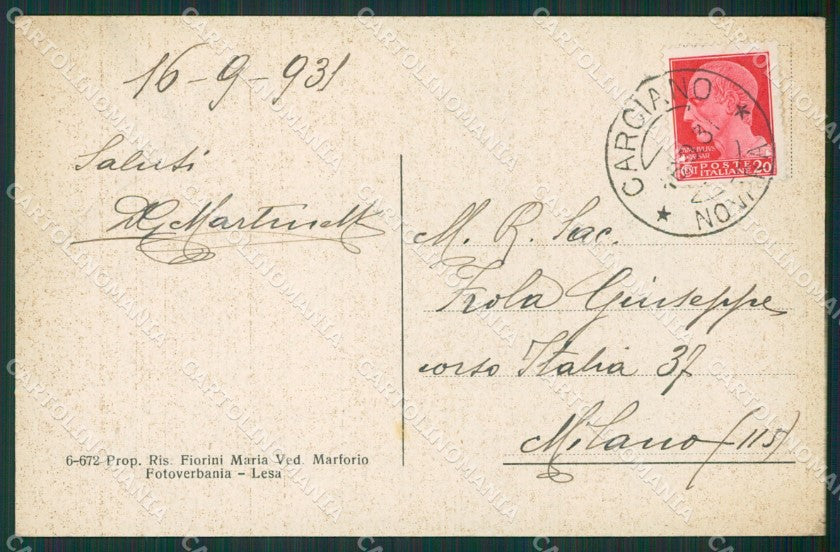 16-9-931
Saluti
M. R. Sac.
Frola Giuseppe
corso Italia 37
Milano (115)
6-672 Prop. Ris. Fiorini Maria Ved. Marforio
Fotoverbania - Lesa
CARCIANO
POSTE
ITALIANE
CENT 20
CARTOLINOMANIA